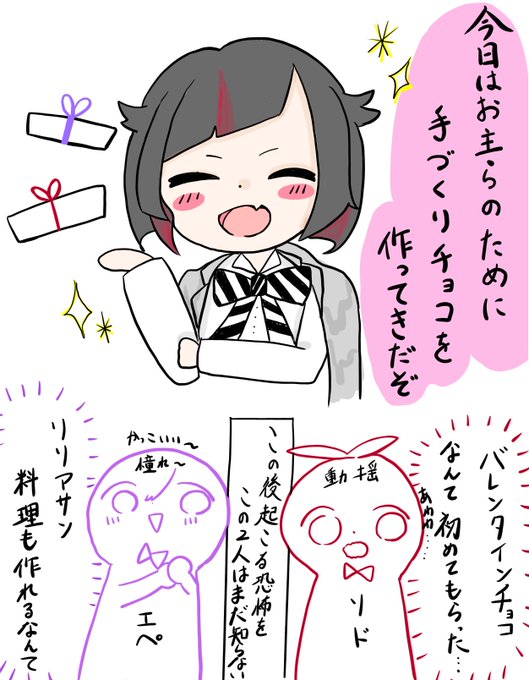 今日はお主らのために
手づくりチョコを
作ってきだぞ
バレンタインチョコ
なんて初めてもらった…
あわわ……
動揺
ソド
この後起こる恐怖を
この2人はまだ知らない
かっこいい〜
憧れ〜
エペ
リリアサン
料理も作れるなんて